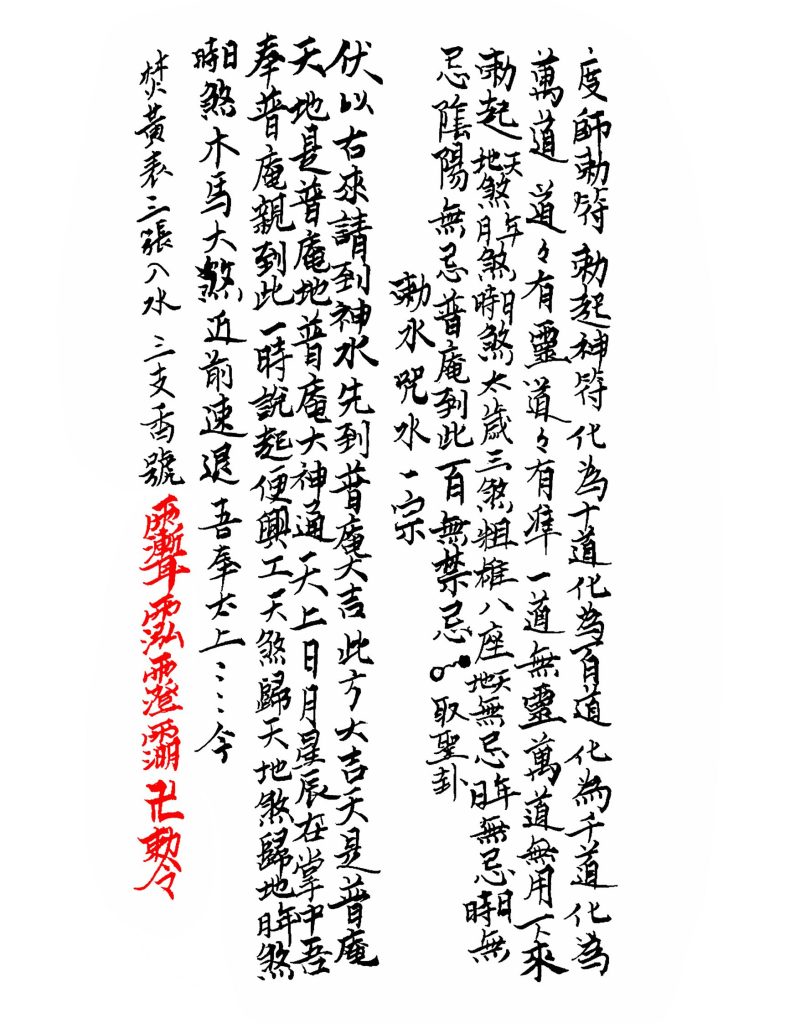 度師勅符 勅起神符 化為十道 化為百道 化為千道 化為
萬道 道々有靈 道々有準 一道無靈 萬道無用 下來
勅起天地煞年月煞日時煞 太歲三煞 粗雄八座 天地無忌 年月無忌 日時無
忌 陰陽無忌 普庵到此 百無禁忌 取聖卦
勅水咒水一宗
伏以右來請到神水先到普庵大吉此方大吉天是普庵
天地是普庵地普庵大神通天上日月星辰在掌中吾
奉普庵親到此一時說起便興工天煞歸天地煞歸地年月煞
日時煞木馬大煞近前速退 吾奉太上：：：令
焚黃表三張入水 三支香號 卍勅令